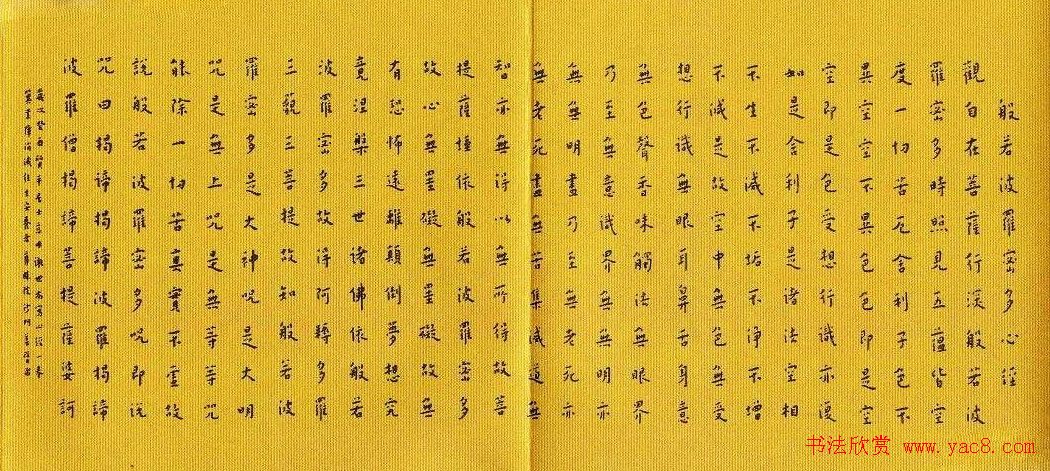 般若波羅密多心經
觀自在菩薩行深般若波
羅密多時照見五蘊皆空
度一切苦厄舍利子色不
異空空不異色色即是空
空即是色受想行識亦復
如是舍利子是諸法空相
不生不滅不垢不淨不增
不減是故空中無色無受
想行識無眼耳鼻舌身意
無色聲香味觸法無眼界
乃至無意識界無無明亦
無無明盡乃至無老死亦
無老死盡無苦集滅道無
智亦無得以無所得故菩
提薩埵依般若波羅密多
故心無罣礙無罣礙故無
有恐怖遠離顛倒夢想究
竟涅槃三世諸佛依般若
波羅密多故得阿耨多羅
三藐三菩提故知般若波
羅密多是大神咒是大明
咒是無上咒是無等等咒
能除一切苦真實不虛故
說般若波羅密多咒即說
咒曰揭諦揭諦波羅揭諦
波羅僧揭諦菩提薩婆訶
歲次癸酉
书法欣赏 www.yac8.com